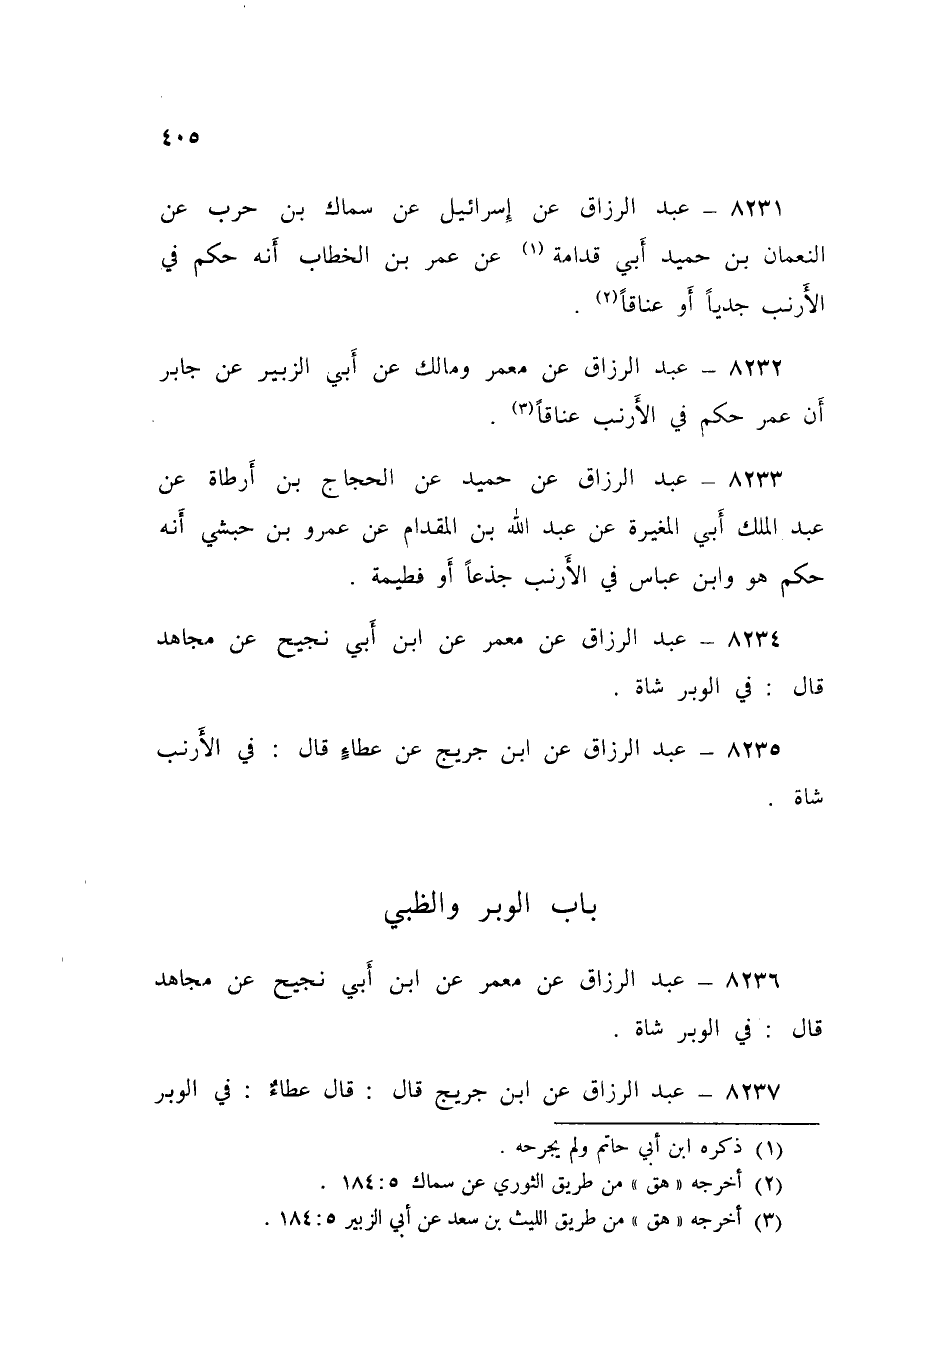 ٤٠٥
٨٢٣١ – عبد الرزاق عن إسرائيل عن سماك بن حرب عن
النعمان بن حميد أبي قدامة (١) عن عمر بن الخطاب أنه حكم في
الأرنب جدياً أو عناقاً(٢) .
٨٢٣٢ – عبد الرزاق عن معمر ومالك عن أبي الزبير عن جابر
أن عمر حكم في الأرنب عناقاً(٣) .
٨٢٣٣ – عبد الرزاق عن حميد عن الحجاج بن أرطاة عن
عبد الملك أبي المغيرة عن عبد الله بن المقدام عن عمرو بن حبشي أنه
حكم هو وابن عباس في الأرنب جذعاً أو فطيمة .
٨٢٣٤ – عبد الرزاق عن معمر عن ابن أبي نجيح عن مجاهد
قال : في الوبر شاة .
٨٢٣٥ – عبد الرزاق عن ابن جريج عن عطاءٍ قال : في الأرنب
شاة .
باب الوبر والظبي
٨٢٣٦ – عبد الرزاق عن معمر عن ابن أبي نجيح عن مجاهد
قال : في الوبر شاة .
٨٢٣٧ – عبد الرزاق عن ابن جريج قال : قال عطاءٌ : في الوبر
(١) ذكره ابن أبي حاتم ولم يجرحه .
(٢) أخرجه « هق » من طريق الثوري عن سماك ٥ : ١٨٤ .
(٣) أخرجه « هق » من طريق الليث بن سعد عن أبي الزبير ٥ : ١٨٤ .